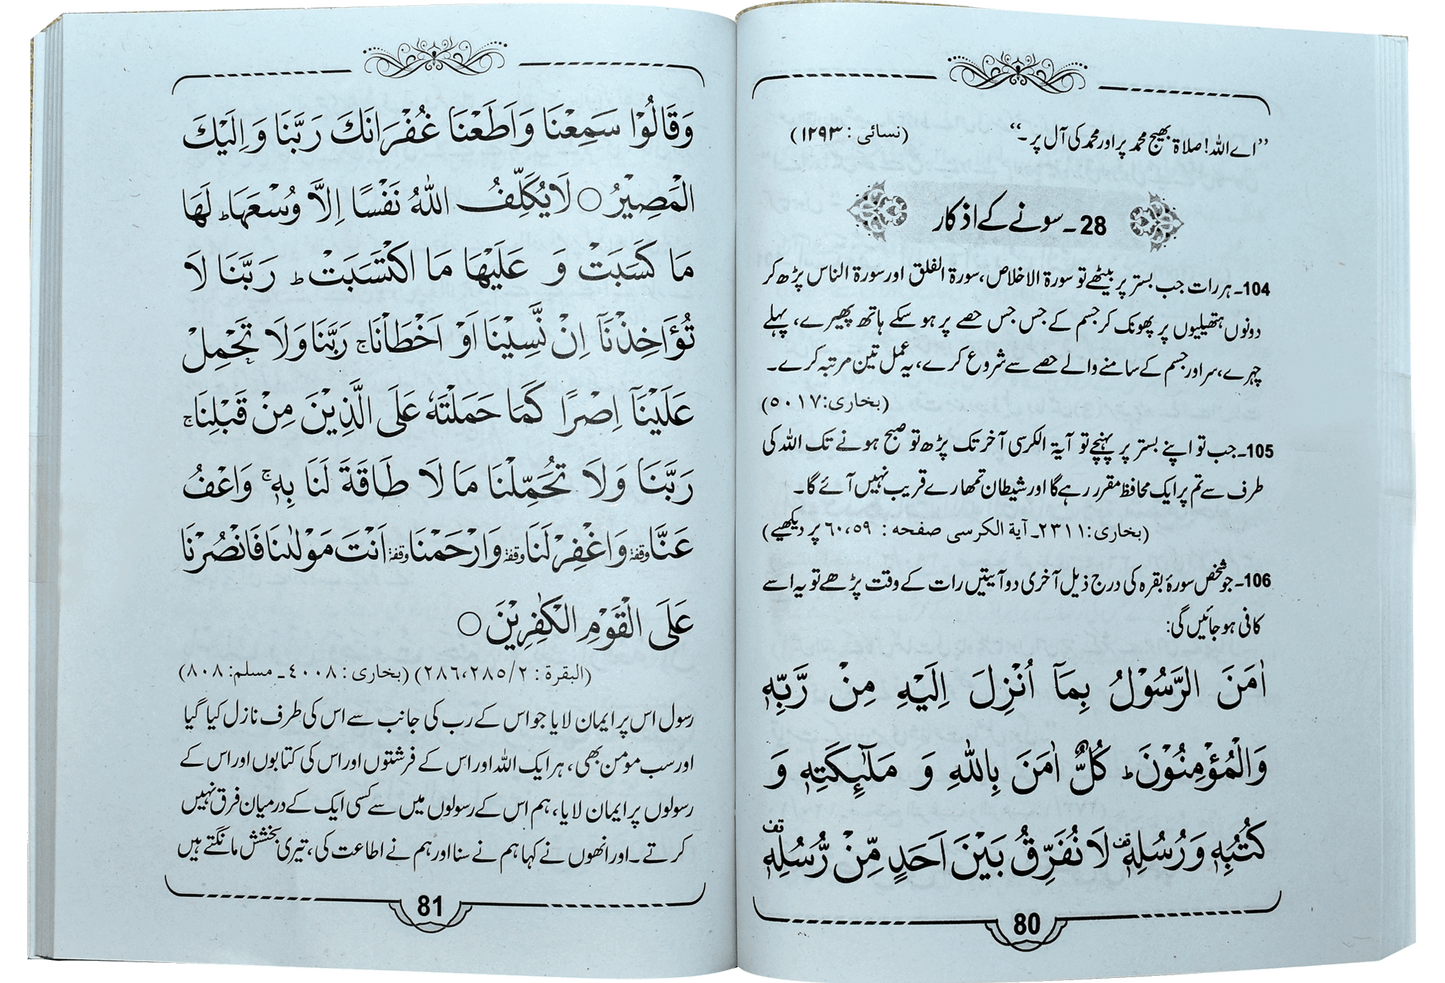 ”اے اللہ! صلاۃ بھیج محمد پر اور محمد کی آل پر۔“ (نسائی : ۱۲۹۳)
28۔ سونے کے اذکار
104۔ ہر رات جب بستر پر بیٹھے تو سورۃ الاخلاص، سورۃ الفلق اور سورۃ الناس پڑھ کر
دونوں ہتھیلیوں پر پھونک کر جسم کے جس جس حصے پر ہو سکے ہاتھ پھیرے، پہلے
چہرے، سر اور جسم کے سامنے والے حصے سے شروع کرے، یہ عمل تین مرتبہ کرے۔
(بخاری: ۵۰۱۷)
105۔ جب تو اپنے بستر پر پہنچے تو آیۃ الکرسی آخر تک پڑھ تو صبح ہونے تک اللہ کی
طرف سے تم پر ایک محافظ مقرر رہے گا اور شیطان تمھارے قریب نہیں آئے گا۔
(بخاری: ۲۳۱۱۔ آیة الکرسی صفحہ : ۶۰،۵۹ پر دیکھیے)
106۔ جو شخص سورۂ بقرہ کی درج ذیل آخری دو آیتیں رات کے وقت پڑھے تو یہ اسے
کافی ہو جائیں گی:
اٰمَنَ الرَّسُوْلُ بِمَآ اُنْزِلَ اِلَيْهِ مِنْ رَّبِّهٖ
وَالْمُؤْمِنُوْنَ ؕ كُلٌّ اٰمَنَ بِاللّٰهِ وَ مَلٰٓئِكَتِهٖ وَ
كُتُبِهٖ وَرُسُلِهٖ ۫ لَا نُفَرِّقُ بَيْنَ اَحَدٍ مِّنْ رُّسُلِهٖ ۫
80
وَقَالُوْا سَمِعْنَا وَاَطَعْنَا غُفْرَانَكَ رَبَّنَا وَاِلَيْكَ
الْمَصِيْرُ ○ لَا يُكَلِّفُ اللّٰهُ نَفْسًا اِلَّا وُسْعَهَا ؕ لَهَا
مَا كَسَبَتْ وَ عَلَيْهَا مَا اكْتَسَبَتْ ؕ رَبَّنَا لَا
تُؤَاخِذْنَآ اِنْ نَّسِيْنَا اَوْ اَخْطَاْنَا ۚ رَبَّنَا وَلَا تَحْمِلْ
عَلَيْنَآ اِصْرًا كَمَا حَمَلْتَهٗ عَلَى الَّذِيْنَ مِنْ قَبْلِنَا ۚ
رَبَّنَا وَلَا تُحَمِّلْنَا مَا لَا طَاقَةَ لَنَا بِهٖ ۚ وَاعْفُ
عَنَّا وقفة وَاغْفِرْ لَنَا وقفة وَارْحَمْنَا وقفة اَنْتَ مَوْلٰىنَا فَانْصُرْنَا
عَلَى الْقَوْمِ الْكٰفِرِيْنَ ○
(البقرة : ۲۸۶،۲۸۵/۲) (بخاری : ۴۰۰۸ ۔ مسلم: ۸۰۸)
رسول اس پر ایمان لایا جو اس کے رب کی جانب سے اس کی طرف نازل کیا گیا
اور سب مومن بھی، ہر ایک اللہ اور اس کے فرشتوں اور اس کی کتابوں اور اس کے
رسولوں پر ایمان لایا، ہم اس کے رسولوں میں سے کسی ایک کے درمیان فرق نہیں
کرتے۔ اور انھوں نے کہا ہم نے سنا اور ہم نے اطاعت کی، تیری بخشش مانگتے ہیں
81